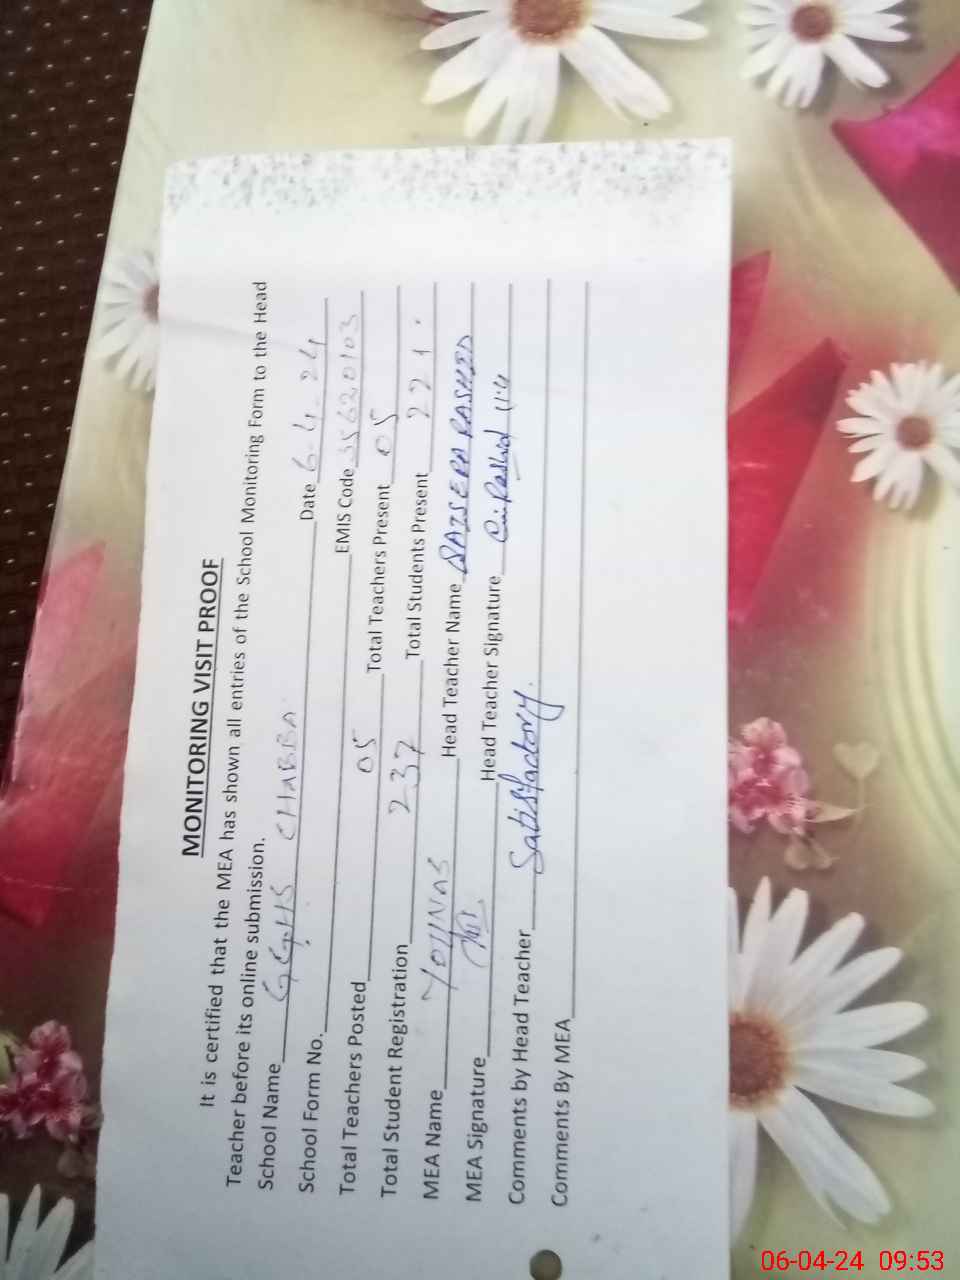 MONITORING VISIT PROOF
It is certified that the MEA has shown all entries of the School Monitoring Form to the Head
Teacher before its online submission.
School Name GGHS CHABBA
School Form No. Date 6-4-24
Total Teachers Posted 05 EMIS Code 35620103
Total Student Registration 237 Total Teachers Present 05
MEA Name YOUNAS Total Students Present 221
MEA Signature Head Teacher Name RASHED
Comments by Head Teacher Satisfactory. Head Teacher Signature
Comments By MEA
06-04-24 09:53